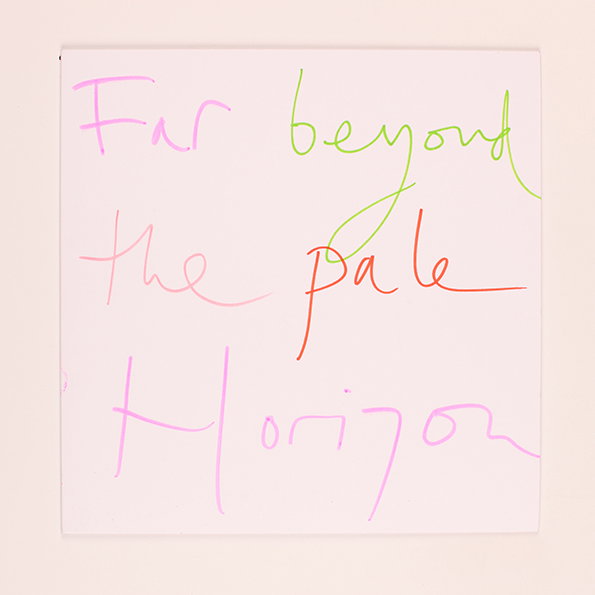 Far beyond
the pale
Horizon